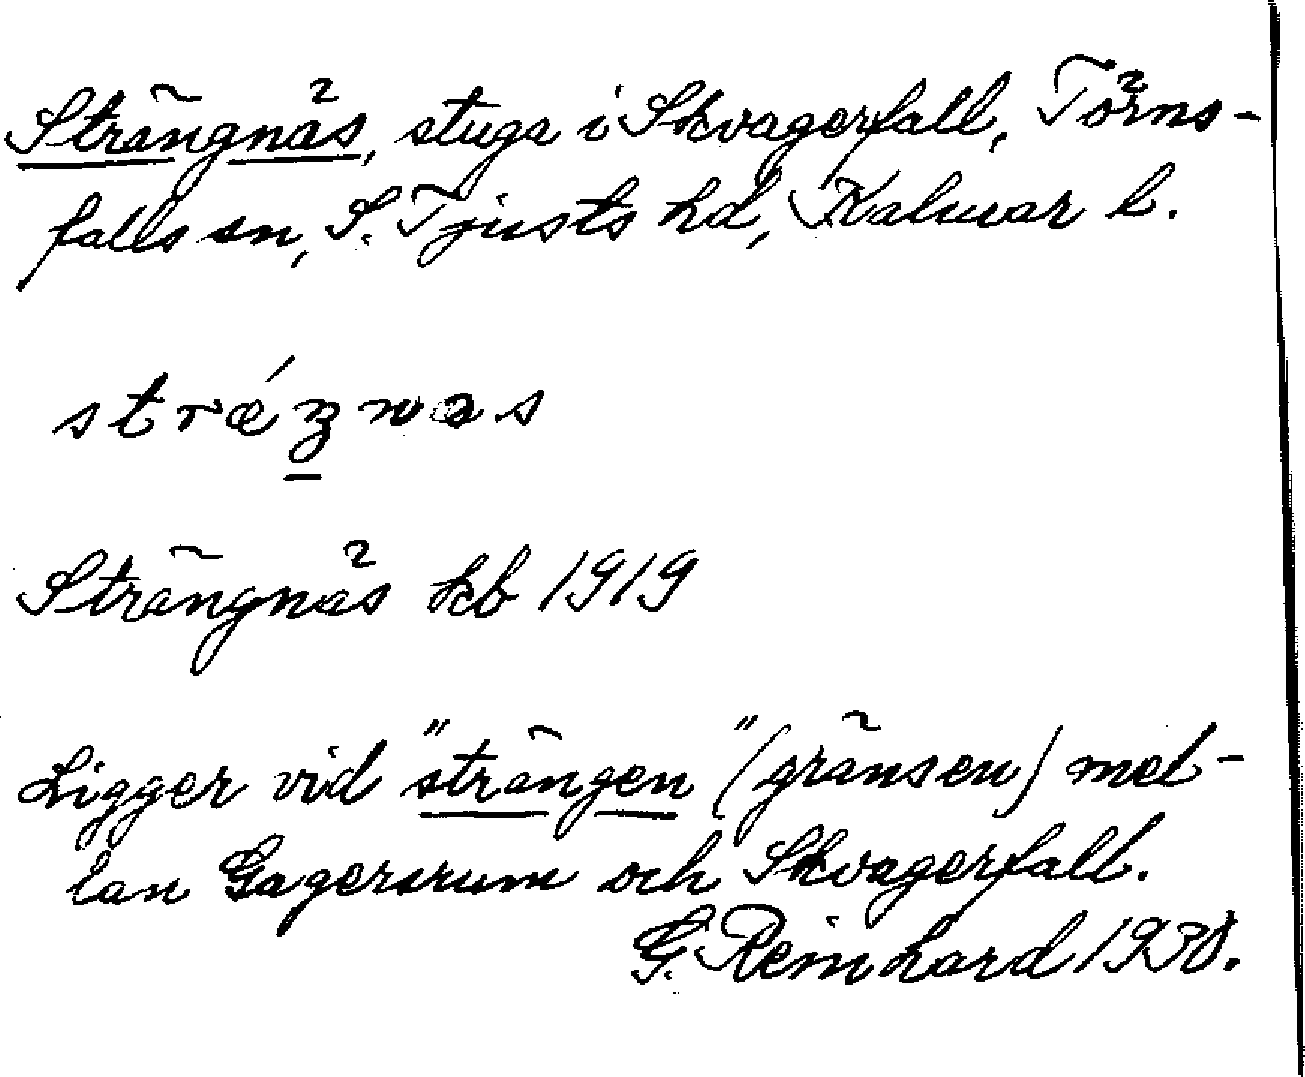 Strängnäs, stuga i Skvagerfall, Törns-
falls sn, S. Tjusts hd, Kalmar l.
strǽŋnas
Strängnäs kb 1919
Ligger vid "strängen" (gränsen) mel-
lan Gagersrum och Skvagerfall.
G. Reinhard 1930.